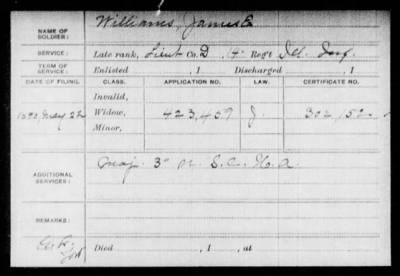 NAME OF SOLDIER: Williams, James E
SERVICE: Late rank, Lieut Co. D, Reg't Inf.
TERM OF SERVICE: Enlisted , 1 Discharged , 1
DATE OF FILING. CLASS. APPLICATION NO. LAW. CERTIFICATE NO.
Invalid,
1890 Widow, 423,409 J. 302,152
Minor,
ADDITIONAL SERVICES: Maj. 3" S.C. H.A.
REMARKS:
Died , 1 , at